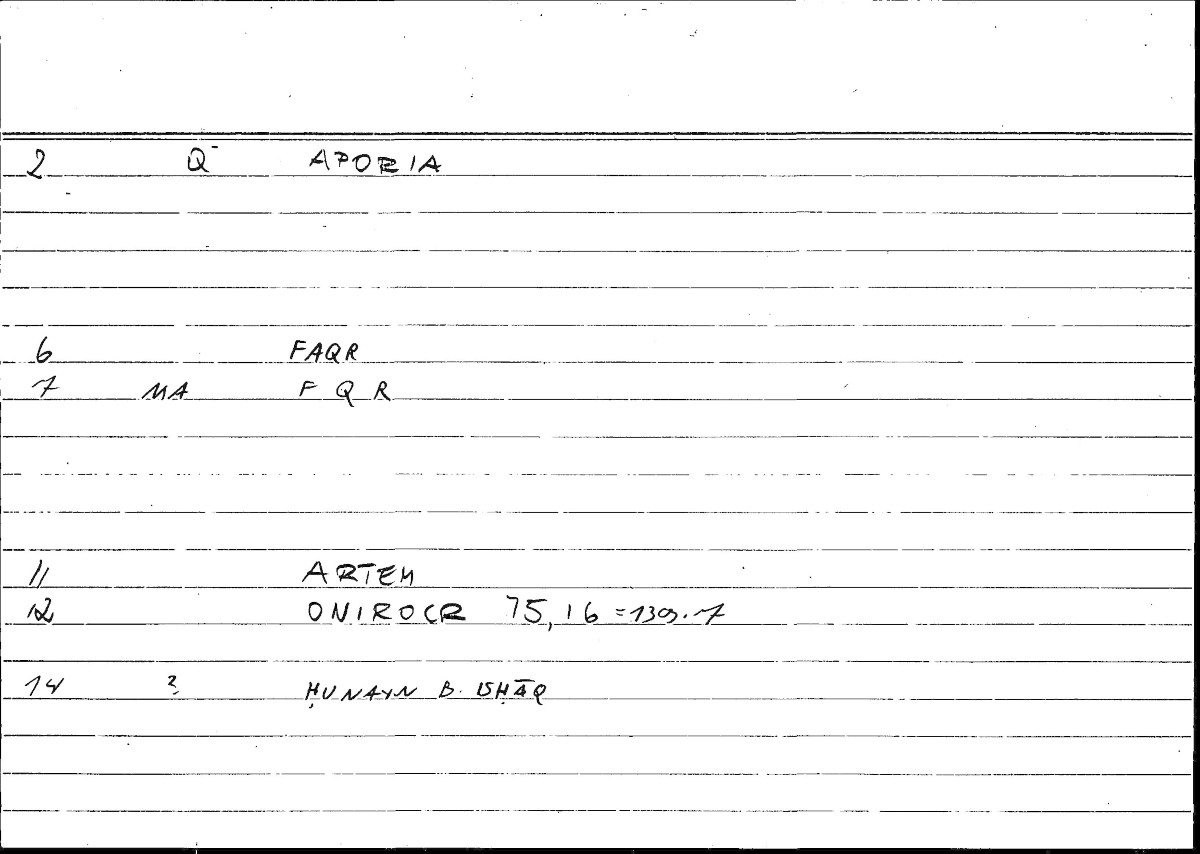 2 Q APORIA
6 FAQR
7 MA F Q R
11 ARTEM
12 ONIROCR 75,16 = 139.7
14 ? ḤUNAYN B. ISḤĀQ